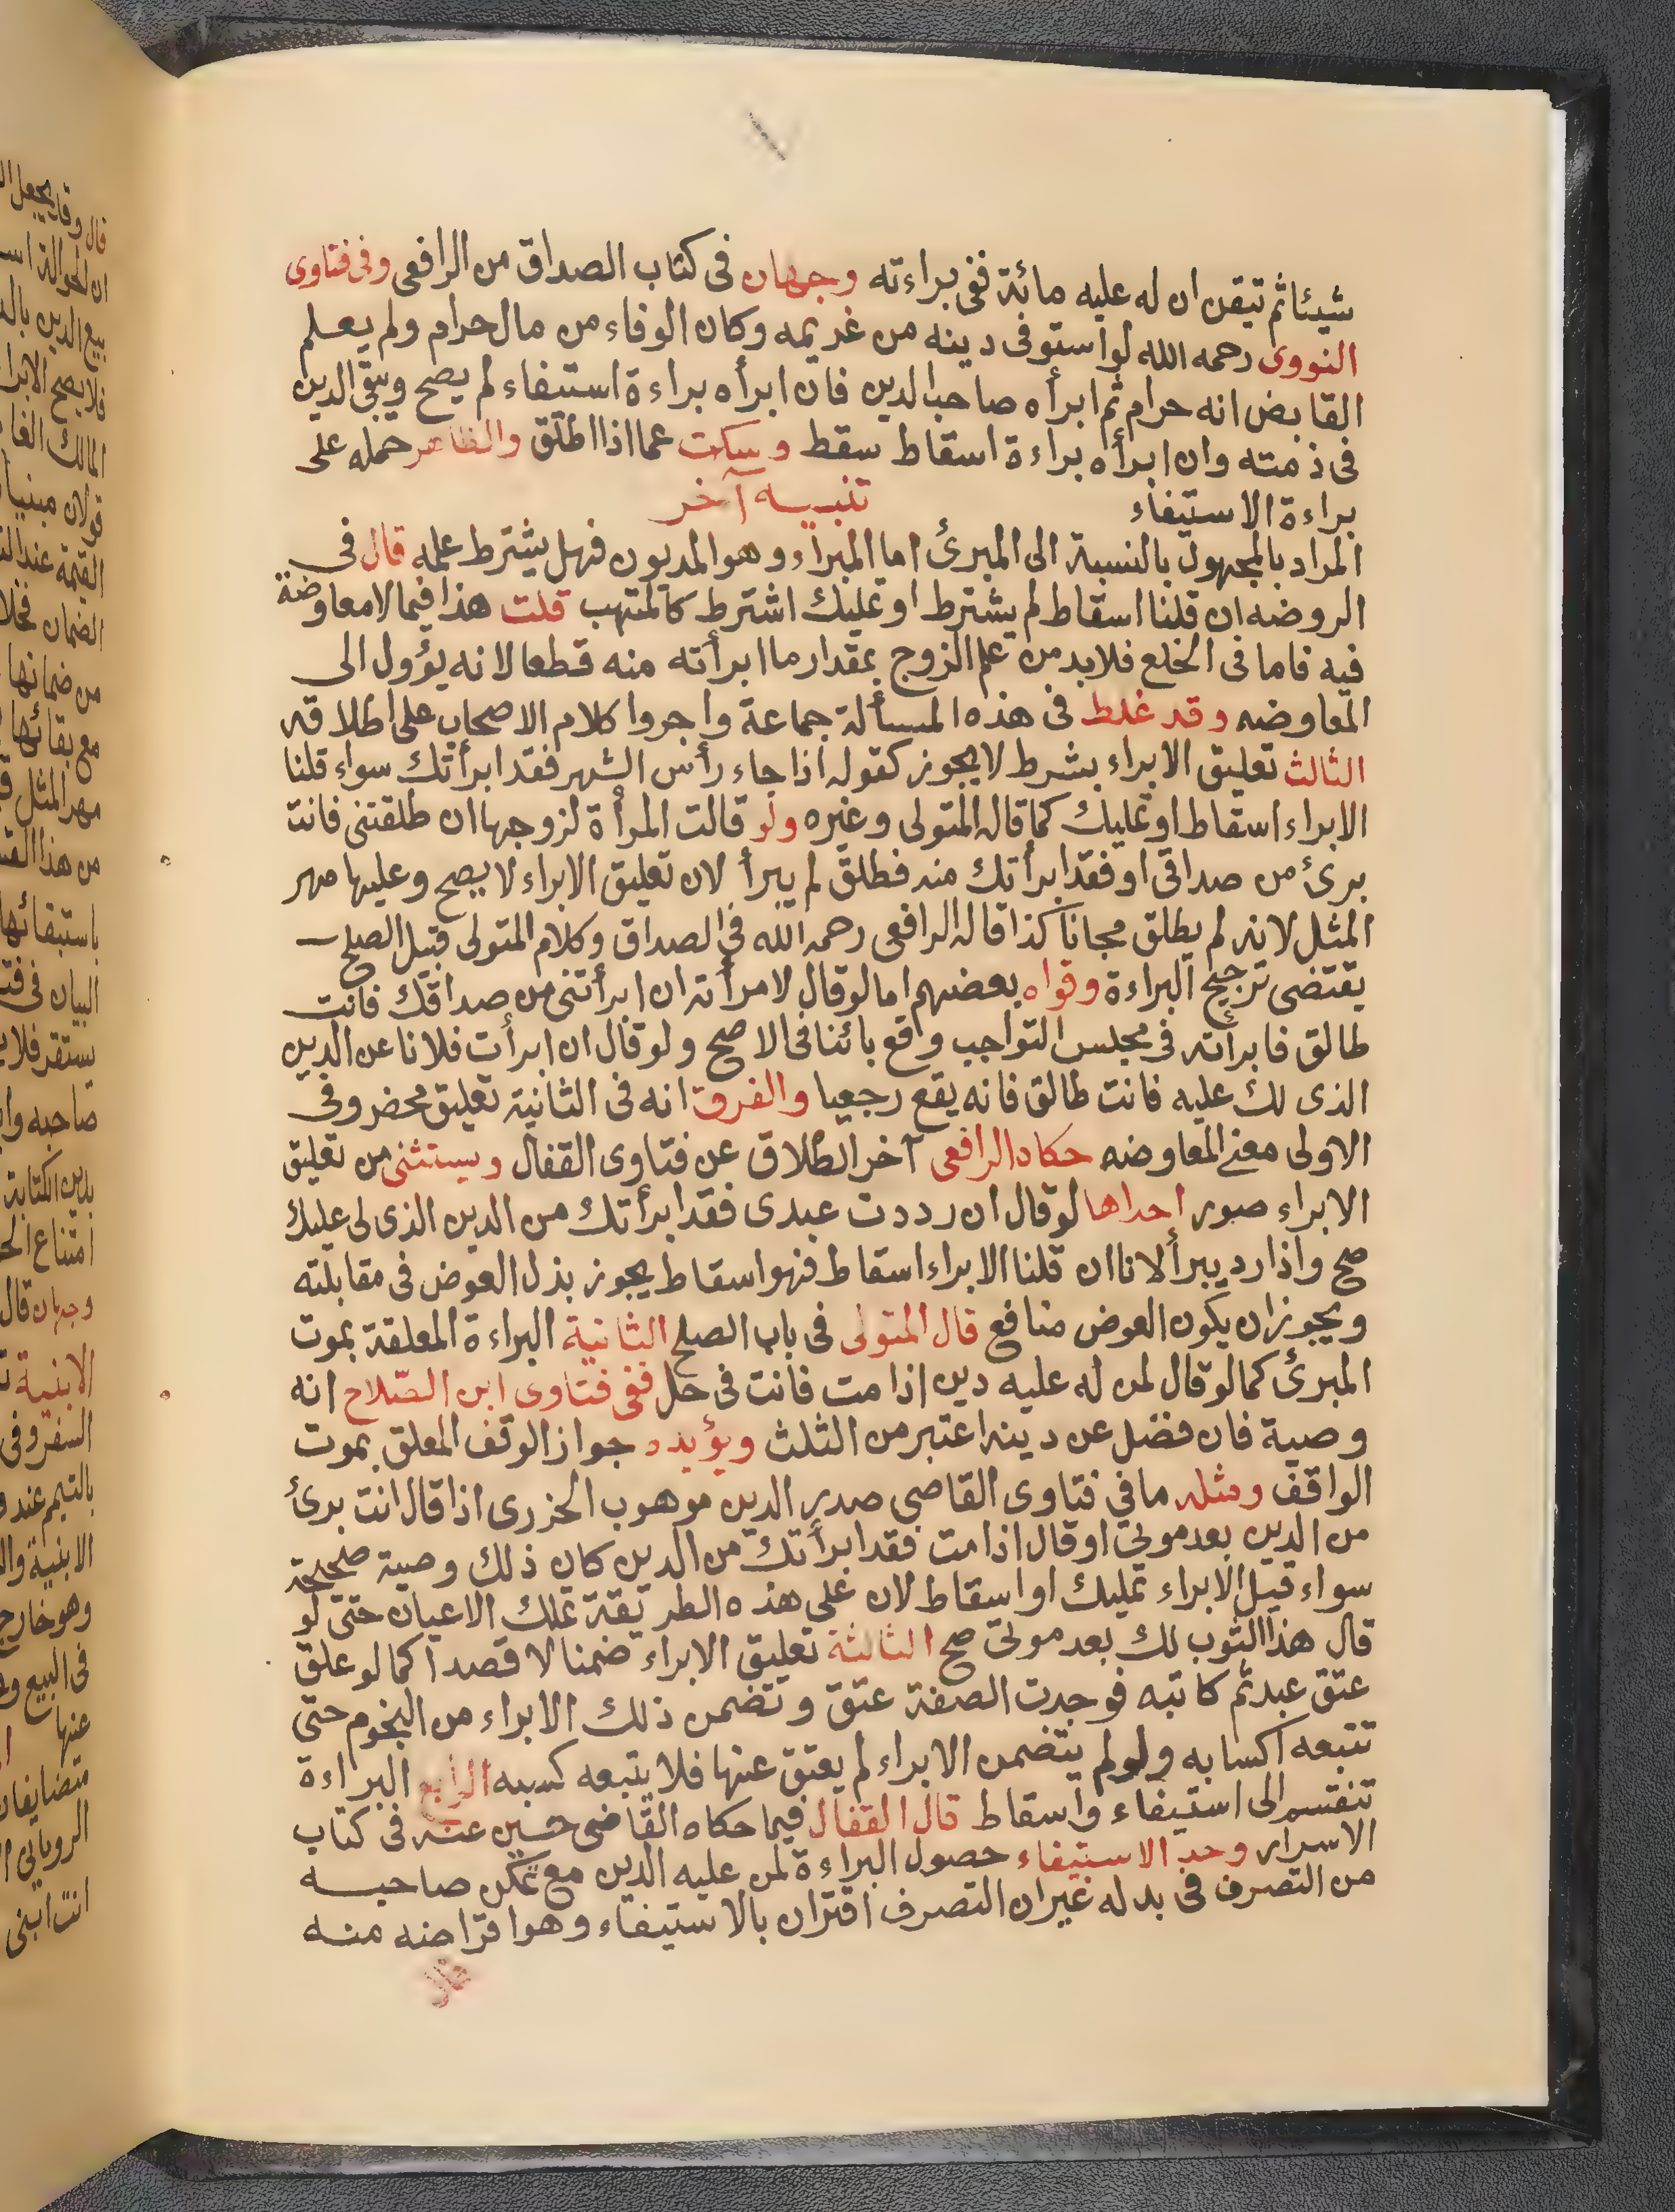 شيئا ثم تيقن ان له عليه مائة ففى براءته وجهان فى كتاب الصداق من الرافعى وفى فتاوى
النووى رحمه الله لو استوفى دينه من غريمه وكان الوفاء من مال حرام ولم يعلم
القابض انه حرام ثم ابرأه صاحب الدين فان ابرأه براءة استيفاء لم يصح ويبقى الدين
فى ذمته وان ابرأه براءة اسقاط سقط وسكت عما اذا اطلق والظاهر حمله على
براءة الاستيفاء تنبيه آخر
المراد بالمجهول بالنسبة الى المبرئ اما المبراء وهو المديون فهل يشترط علمه قال فى
الروضه ان قلنا اسقاط لم يشترط او تمليك اشترط كالمتهب قلت هذا فيما لا معاوضة
فيه فاما فى الخلع فلابد من علم الزوج بمقدار ما ابرأته منه قطعا لانه يؤول الى
المعاوضه وقد غلط فى هذه المسألة جماعة واجروا كلام الاصحاب على اطلاقه
الثالث تعليق الابراء بشرط لا يجوز كقوله اذا جاء رأس الشهر فقد ابرأتك سواء قلنا
الابراء اسقاط او تمليك كما قاله المتولى وغيره ولو قالت المرأة لزوجها ان طلقتنى فانت
برئ من صداقى او فقد ابرأتك منه فطلق لم يبرأ لان تعليق الابراء لا يصح وعليها مهر
المثل لانه لم يطلق مجانا كذا قاله الرافعى رحمه الله فى الصداق وكلام المتولى قبيل الصلح
يقتضى ترجيح البراءة وقواه بعضهم اما لو قال لامرأته ان ابرأتنى من صداقك فانت
طالق فابرأته فى مجلس التواجب وقع بائنا فى الاصح ولو قال ان ابرأت فلانا عن الدين
الذى لك عليه فانت طالق فانه يقع رجعيا والفرق انه فى الثانية تعليق محض وفى
الاولى معنى المعاوضه حكاه الرافعى آخر الطلاق عن فتاوى القفال ويستثنى من تعليق
الابراء صور احداها لو قال ان رددت عبدى فقد ابرأتك من الدين الذى لى عليك
صح واذا رد يبرأ لانا ان قلنا الابراء اسقاط فهو اسقاط يجوز بذل العوض فى مقابلته
ويجوز ان يكون العوض منافع قال المتولى فى باب الصلح الثانية البراءة المعلقة بموت
المبرئ كما لو قال لمن له عليه دين اذا مت فانت فى حل ففى فتاوى ابن الصلاح انه
وصية فان فضل عن دينه اعتبر من الثلث ويؤيده جواز الوقف المعلق بموت
الواقف ومثله ما فى فتاوى القاضى صدر الدين موهوب الجزرى اذا قال انت برئ
من الدين بعد موتى او قال اذا مت فقد ابرأتك من الدين كان ذلك وصية صحيحة
سواء قيل الابراء تمليك او اسقاط لان على هذه الطريقة تملك الاعيان حتى لو
قال هذا الثوب لك بعد موتى صح الثالثة تعليق الابراء ضمنا لا قصدا كما لو علق
عتق عبد ثم كاتبه فوجدت الصفة عتق وتضمن ذلك الابراء من النجوم حتى
تتبعه اكسابه ولو لم يتضمن الابراء لم يعتق عنها فلا يتبعه كسبه الرابع البراءة
تنقسم الى استيفاء واسقاط قال القفال فيما حكاه القاضى حسين عنه فى كتاب
الاسرار وحد الاستيفاء حصول البراءة لمن عليه الدين مع تمكن صاحبه
من التصرف فى بدله غير ان التصرف اقتران بالاستيفاء وهو اقراضه منه